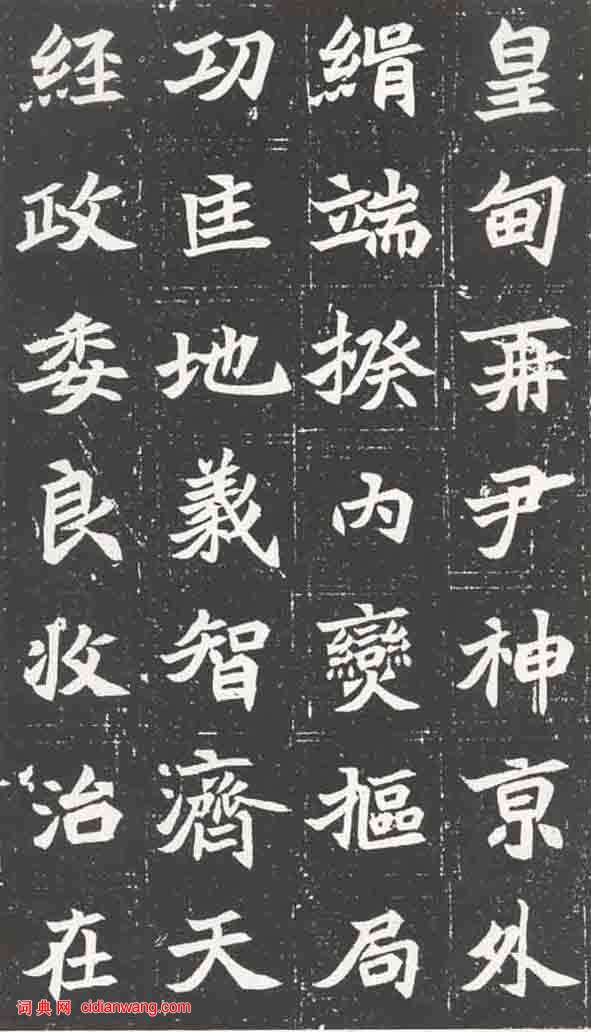 皇甸再尹神京外
緝端揆內變樞局
功匡地義智濟天
經政委良牧治在
词典网 cidianwang.com